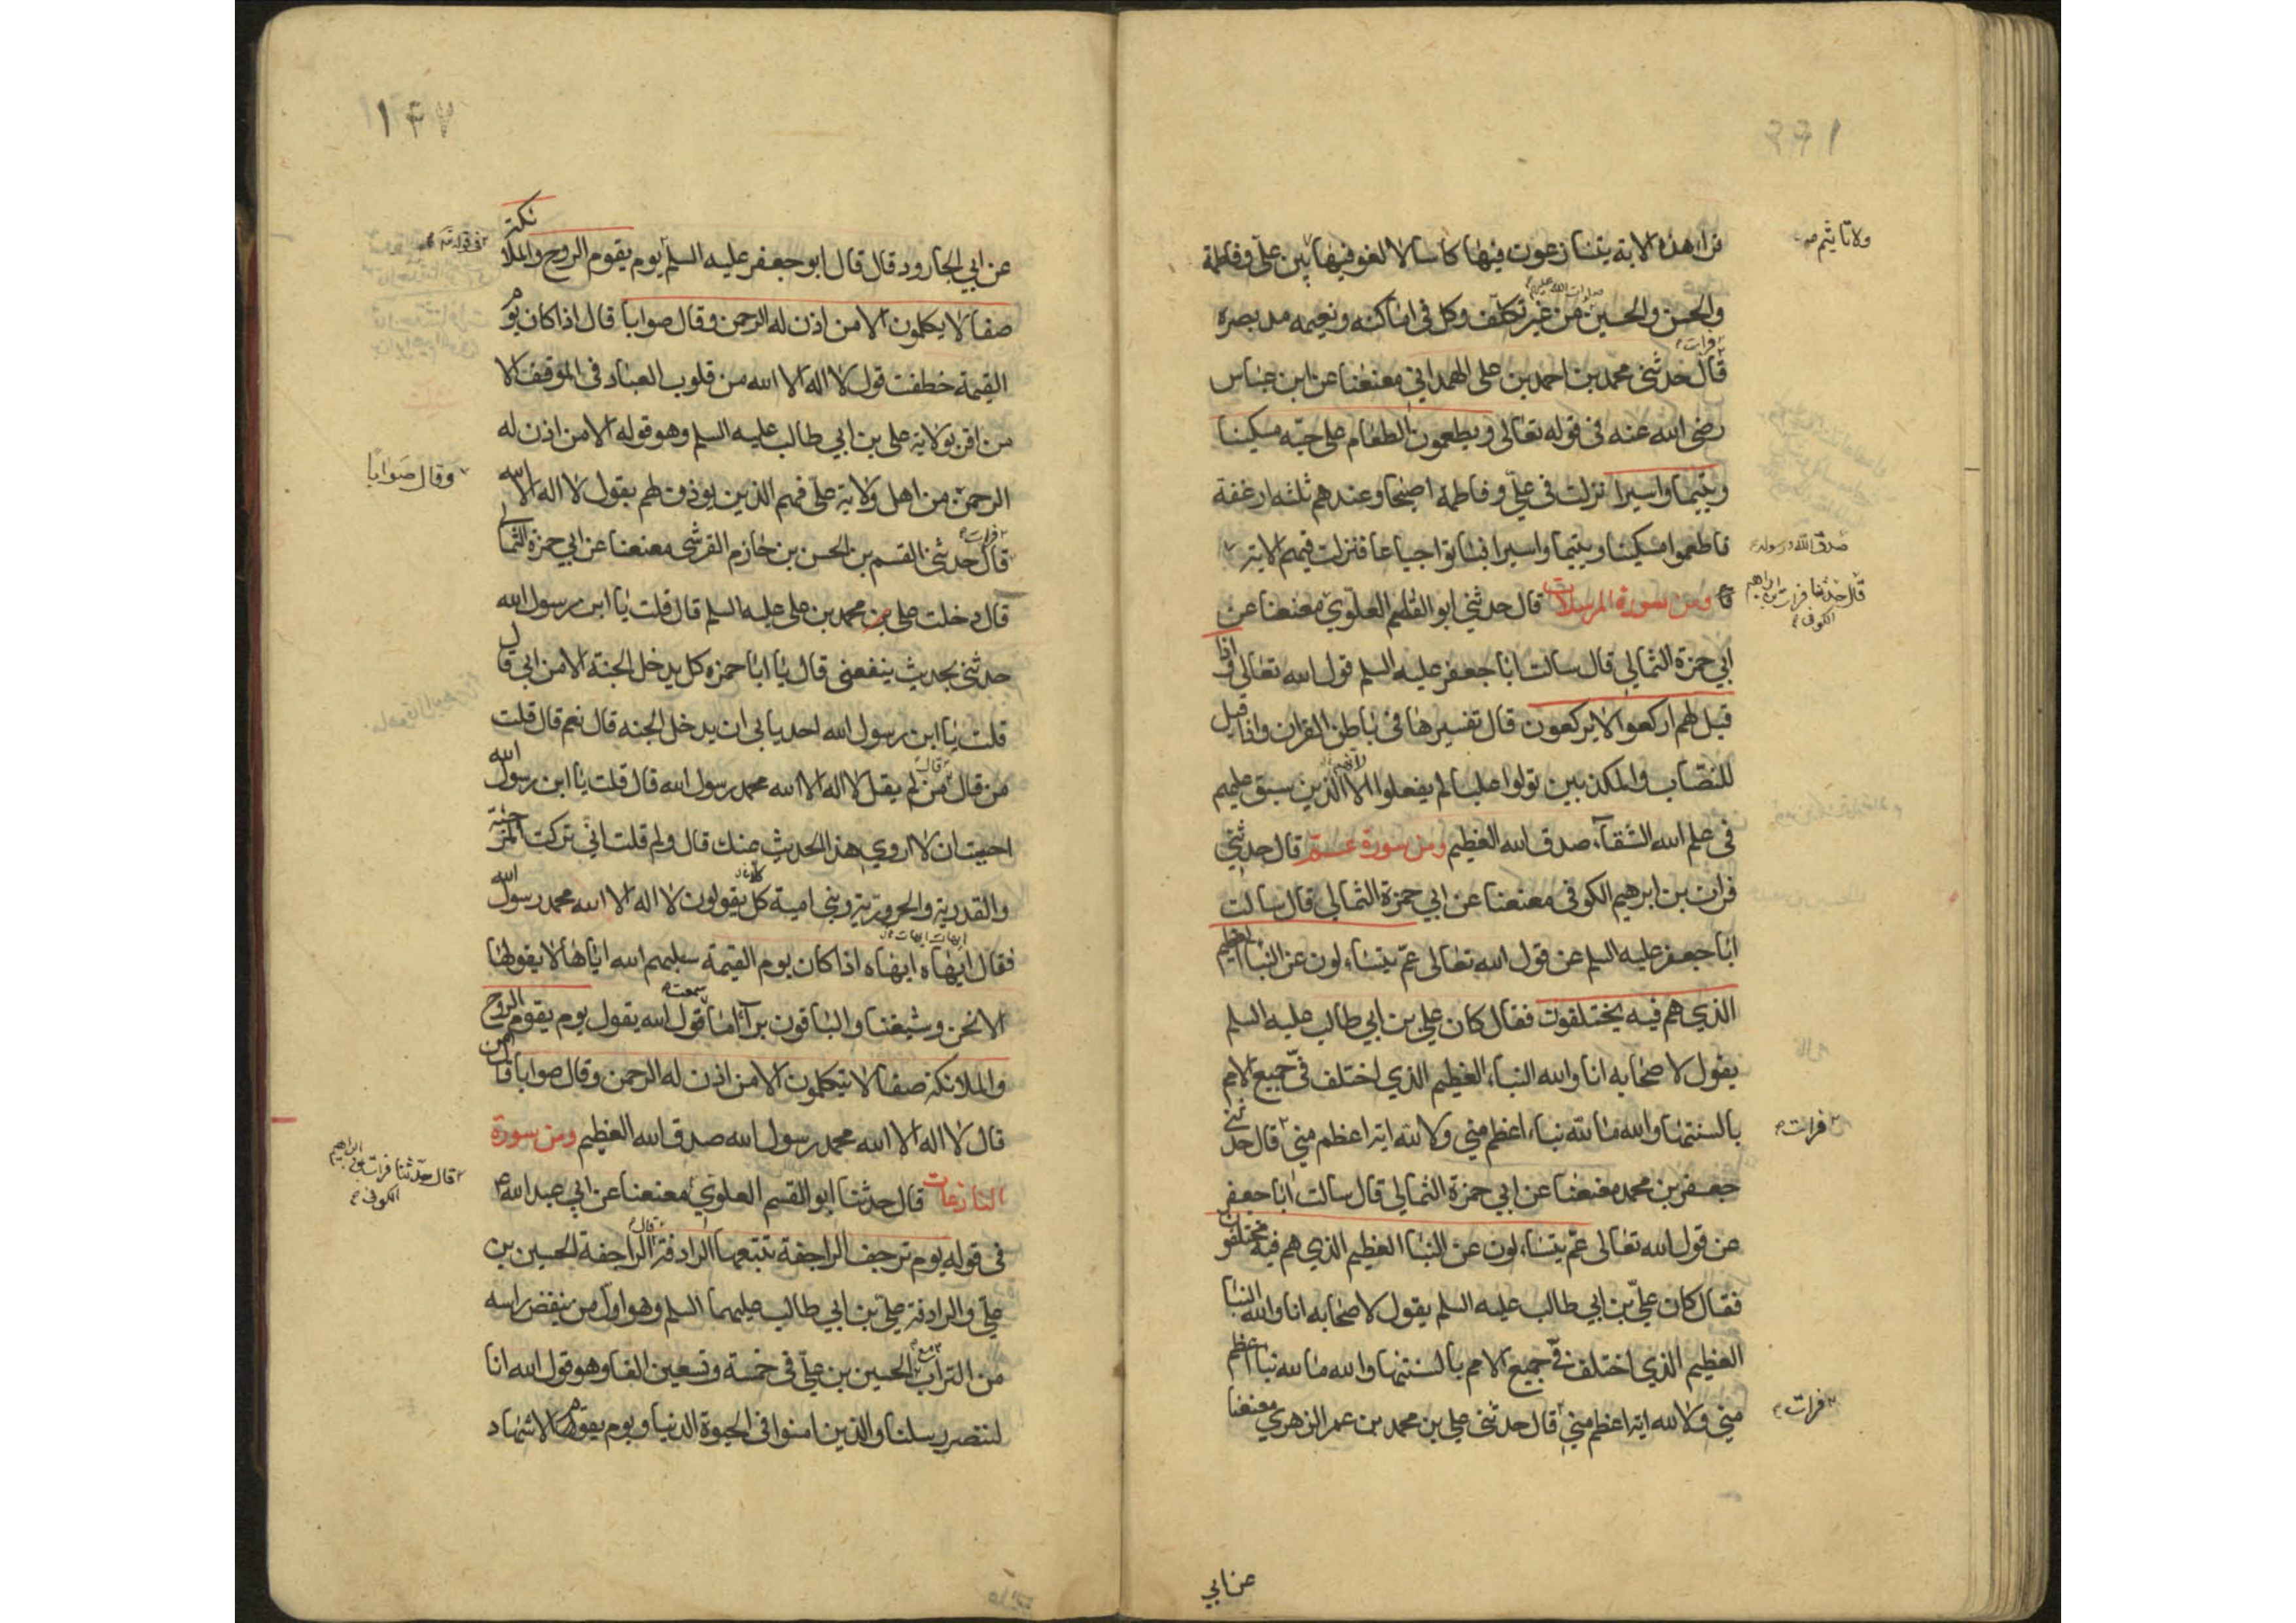 قرا هذه الاية يتنازعون فيها كاسا لا لغو فيها بين علي وفاطمة
ولا تاثيم صح
والحسن والحسين من غير تكلف وكل في اماكنه ونعيمه مد بصره
صلوات الله عليهم
قال حدثني محمد بن احمد بن علي الهمداني معنعنا عن ابن عباس
فرات
رضي الله عنه في قوله تعالى ويطعمون الطعام على حبه مسكينا
ويتيما واسيرا نزلت في علي وفاطمة اصبحا وعندهم ثلثه ارغفة
فاطعموا مسكينا ويتيما واسيرا فباتوا جياعا فنزلت فيهم الاية
صدق الله ورسوله
ومن سورة المرسلات قال حدثني ابو القسم العلوي معنعنا عن
قال حدثنا فرات بن ابراهيم
الكوفي
ابي حمزة الثمالي قال سالت ابا جعفر عليه السلم قول الله تعالى واذا
قيل لهم اركعوا لا يركعون قال تفسيرها في باطن القران واذا قيل
للنصاب والمكذبين تولوا عليا لم يفعلوا الا الذين سبق عليهم
لانهم
في علم الله الشقآء صدق الله العظيم ومن سورة عم قال حدثني
فرات بن ابرهيم الكوفي معنعنا عن ابي حمزة الثمالي قال سالت
ابا جعفر عليه السلم عن قول الله تعالى عم يتساءلون عن النبا العظيم
الذي هم فيه يختلفون فقال كان علي بن ابي طالب عليه السلم
يقول لاصحابه انا والله النباء العظيم الذي اختلف في جميع الامم
بالسنتها والله ما لله نباء اعظم مني ولا لله اية اعظم مني قال حدثني
فرات
جعفر بن محمد معنعنا عن ابي حمزة الثمالي قال سالت ابا جعفر
عن قول الله تعالى عم يتساءلون عن النبا العظيم الذي هم فيه مختلفون
فقال كان علي بن ابي طالب عليه السلم يقول لاصحابه انا والله النبا
العظيم الذي اختلف في جميع الامم بالسنتها والله ما لله نبا اعظم
مني ولا لله اية اعظم مني قال حدثني علي بن محمد بن عمر الزهري معنعنا
فرات
عن ابي
١٤٧
عن ابي الجارود قال قال ابو جعفر عليه السلم يوم يقوم الروح والملائكة
في قوله تعالى
صفا لا يكلمون الا من اذن له الرحمن وقال صوابا قال اذا كان يوم
القيمة خطفت قول لا اله الا الله من قلوب العباد في الموقف الا
من اقر بولاية علي بن ابي طالب عليه السلم وهو قوله الا من اذن له
وقال صوابا
الرحمن من اهل ولاية علي فهم الذين يوذن لهم بقول لا اله الا الله
قال حدثني القسم بن الحسن بن خازم القرشي معنعنا عن ابي حمزة الثمالي
فرات
قال دخلت على محمد بن علي عليه السلم قال قلت يا ابن رسول الله
حدثني بحديث ينفعني قال يا ابا حمزه كل يدخل الجنة الا من ابي قال
قلت يا ابن رسول الله احد يابى ان يدخل الجنه قال نعم قال قلت
من قال من لم يقل لا اله الا الله محمد رسول الله قال قلت يا ابن رسول الله
قال
احببت ان لا اروي هذا الحديث عنك قال ولم قلت اني تركت المرجئة
والقدرية والحرورية وبني امية كل يقولون لا اله الا الله محمد رسول الله
فقال ايهاه ايهاه اذا كان يوم القيمة سلبهم الله اياها لا يقولها
ايهات ايهات
الا نحن وشيعتنا والباقون برآء اما قول الله يقول يوم يقوم الروح
سمعت
والملائكة صفا لا يتكلمون الا من اذن له الرحمن وقال صوابا قال من
قال لا اله الا الله محمد رسول الله صدق الله العظيم ومن سورة
النازعات قال حدثنا ابو القسم العلوي معنعنا عن ابي عبد الله
قال حدثنا فرات بن ابراهيم
الكوفي
في قوله يوم ترجف الراجفة تتبعها الرادفة الراجفة الحسين بن
قال
علي والرادفة علي بن ابي طالب عليهما السلم وهو اول من ينفض راسه
من التراب الحسين بن علي في خمسة وتسعين الفا وهو قول الله انا
مع
لننصر رسلنا والذين امنوا في الحيوة الدنيا ويوم يقوم الاشهاد